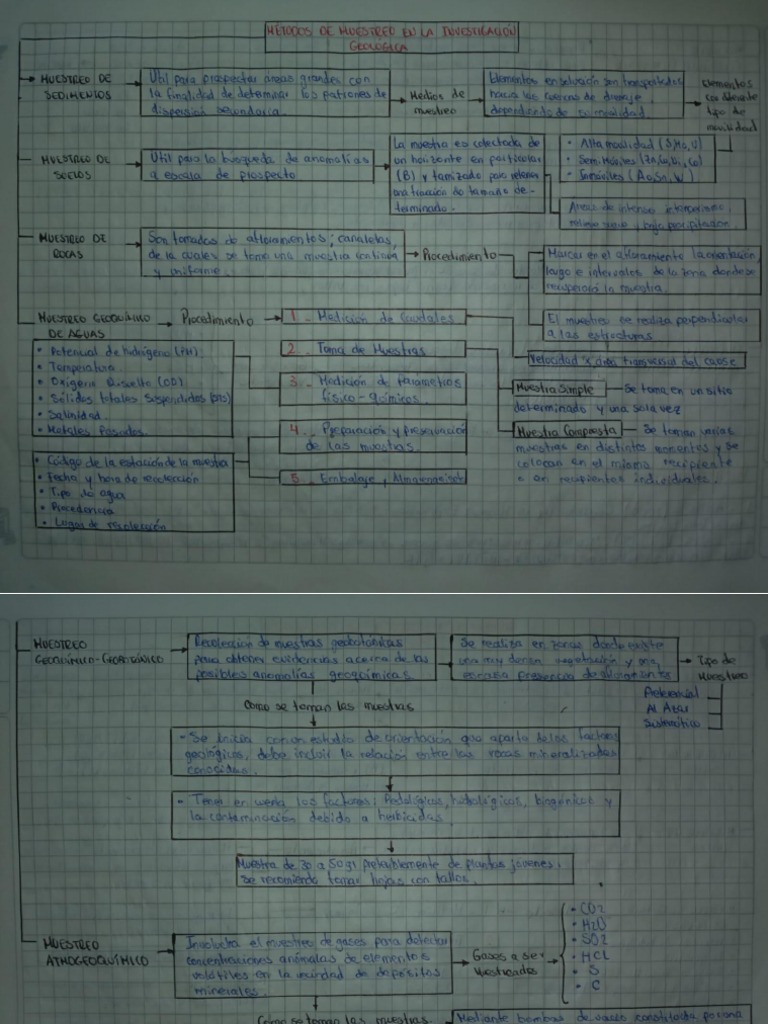 MÉTODOS DE MUESTREO EN LA INVESTIGACIÓN
GEOLÓGICA
MUESTREO DE
SEDIMENTOS
Util para prospectar áreas grandes con
la finalidad de determinar los patrones de
dispersión secundaria.
Medios de
muestreo
Elementos en solución son transportados
hacia los de drenaje
dependiendo de su movilidad.
Elementos
con diferente
tipo de
movilidad
• Alta movilidad
• Semi Móviles
• Inmóviles
MUESTREO DE
SUELOS
Util para la búsqueda de anomalías
a escala de prospecto
La muestra es colectada de
un horizonte en particular
(B) y tamizado para retener
una fracción de tamaño de-
terminado.
Áreas de intenso intemperismo,
relieve suave y baja precipitación
MUESTREO DE
ROCAS
Son tomados de afloramientos; canaletas,
de la cuales se toma una muestra continua
y uniforme.
Procedimiento
Marcar en el afloramiento la orientación,
largo e intervalos de la zona donde se
recuperará la muestra.
El muestreo se realiza perpendicular
a las estructuras
MUESTREO GEOQUÍMICO
DE AGUAS
Procedimiento
1.- Medición de Caudales
2.- Toma de Muestras
3.- Medición de Parámetros
físico-químicos.
4.- Preparación y preservación
de las muestras.
5.- Embalaje y Almacenaje
Velocidad x área transversal del cauce
Muestra Simple — Se toma en un sitio
determinado y una sola vez
Muestra Compuesta — Se toman varias
muestras en distintos momentos y se
colocan en el mismo recipiente
o en recipientes individuales.
• Potencial de hidrógeno (PH)
• Temperatura
• Oxígeno Disuelto (OD)
• Sólidos totales Suspendidos
• Salinidad
• Metales Pesados.
• Código de la estación de la muestra
• Fecha y hora de recolección
• Tipo de agua
• Procedencia
• Lugar de recolección
MUESTREO
GEOQUÍMICO-GEOBOTÁNICO
Recolección de muestras geobotánicas
para obtener evidencias acerca de las
posibles anomalías geoquímicas.
Se realiza en zonas donde existe
una muy densa vegetación y una
escasa presencia de afloramientos
Tipo de
Muestreo
Preferencial
Al Azar
Sistemático
Como se toman las muestras
• Se inicia con un estudio de orientación que aparte de los factores
geológicos, debe incluir la relación entre las rocas mineralizadas
conocidas.
• Tener en cuenta los factores: Pedológicos, hidrológicos, biogénicos y
la contaminación debido a herbicidas.
Muestra de 30 a 50 gr preferiblemente de plantas jóvenes.
se recomienda tomar hojas con tallos.
MUESTREO
ATMOGEOQUÍMICO
Involucra el muestreo de gases para detectar
concentraciones anómalas de elementos
volátiles en la vecindad de depósitos
minerales.
Gases a ser
muestreados
• CO2
• H2O
• SO2
• HCL
• S
• C
Cómo se toman las muestras.
Mediante bombas de vacío